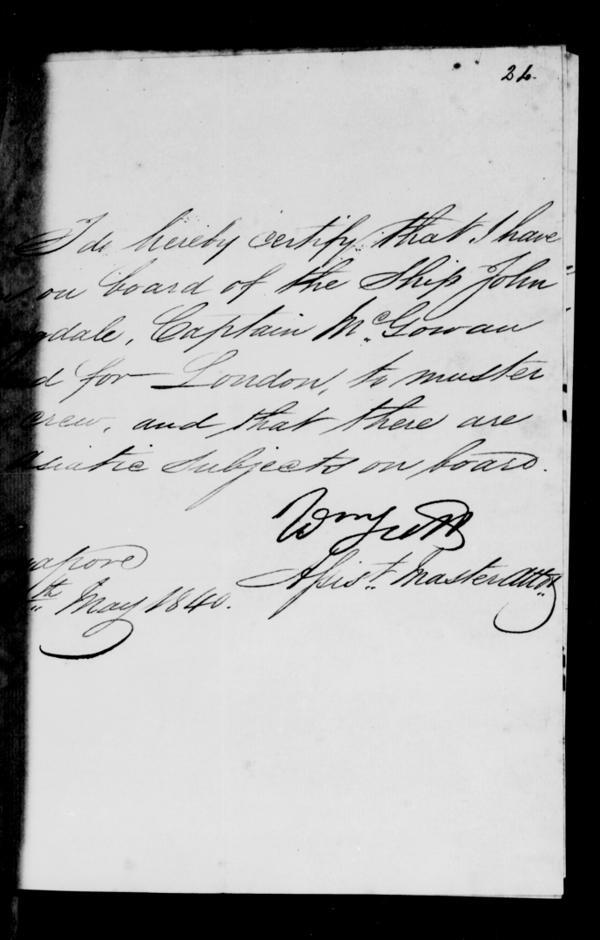 24.
I do hereby certify that I have
on board of the Ship John
gdale, Captain McGowan
d for London, to muster
crew, and that there are
Asiatic Subjects on board.
Wm
apore
Assist. Master Attdt
th May 1840.